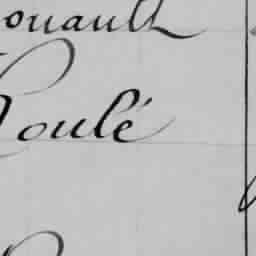 ouault
Roulé